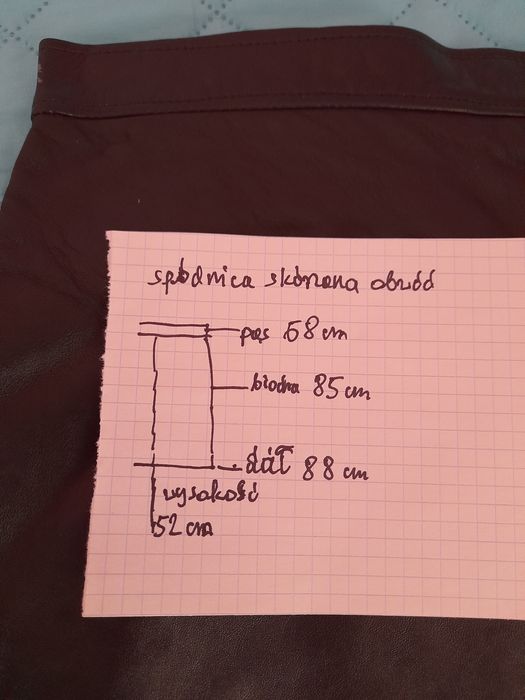 spódnica skórzana obwód
pas 68 cm
biodra 85 cm
dół 88 cm
wysokość
52 cm